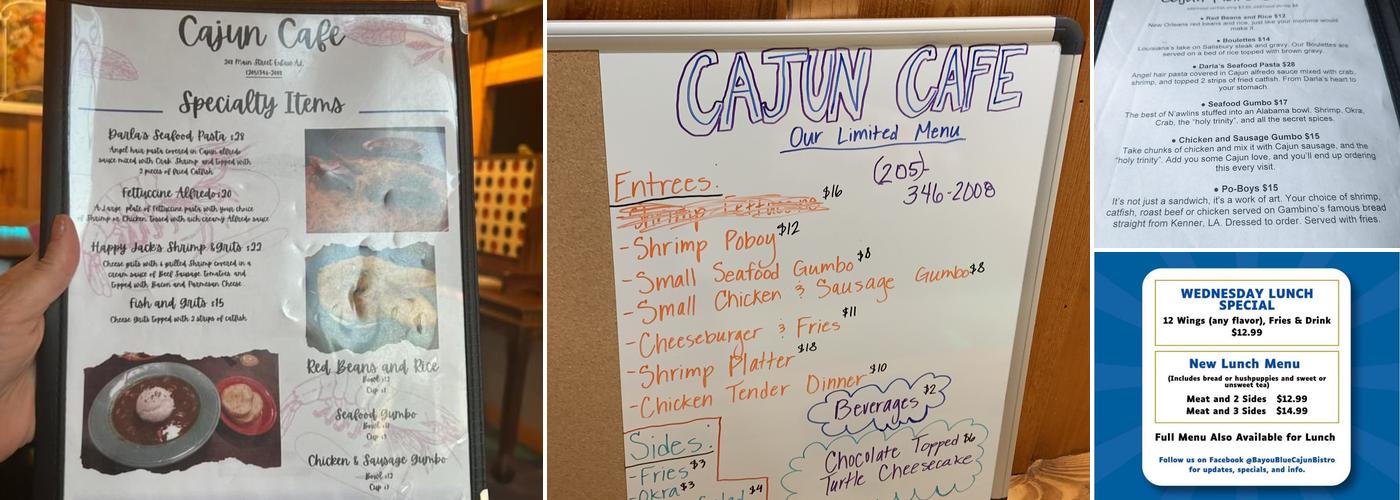 Cajun Cafe
Specialty Items
Darla's Seafood Pasta $28
Angel hair pasta covered in Cajun alfredo
sauce mixed with Crab Shrimp and topped with
2 pieces of fried Catfish
Fettuccine Alfredo $20
A Large plate of Fettuccine pasta with your choice
of Shrimp or Chicken tossed with rich creamy Alfredo sauce
Happy Jack's Shrimp & Grits $22
Cheese grits with 6 grilled Shrimp covered in a
cream sauce of Beef Sausage tomatoes and
topped with Bacon and Parmesan Cheese
Fish and Grits $15
Cheese grits topped with 2 strips of catfish
Red Beans and Rice
Bowl $12
Cup
Seafood Gumbo
Bowl
Cup
Chicken & Sausage Gumbo
Bowl
Cup
CAJUN CAFE
Our Limited Menu
(205)-
346-2008
Entrees:
Shrimp Fettuccine $16
- Shrimp Poboy $12
- Small Seafood Gumbo $8
- Small Chicken & Sausage Gumbo $8
- Cheeseburger & Fries $11
- Shrimp Platter $18
- Chicken Tender Dinner $10
Beverages $2
Sides:
- Fries $3
- Okra $3
Salad $4
Chocolate Topped $6
Turtle Cheesecake
• Red Beans and Rice $12
New Orleans red beans and rice, just like your momma would
make it.
• Boulettes $14
Louisiana's take on Salisbury steak and gravy. Our Boulettes are
served on a bed of rice topped with brown gravy.
• Darla's Seafood Pasta $28
Angel hair pasta covered in Cajun alfredo sauce mixed with crab,
shrimp, and topped 2 strips of fried catfish. From Darla's heart to
your stomach.
• Seafood Gumbo $17
The best of N'awlins stuffed into an Alabama bowl. Shrimp, Okra,
Crab, the "holy trinity", and all the secret spices.
• Chicken and Sausage Gumbo $15
Take chunks of chicken and mix it with Cajun sausage, and the
"holy trinity". Add you some Cajun love, and you'll end up ordering
this every visit.
• Po-Boys $15
It's not just a sandwich, it's a work of art. Your choice of shrimp,
catfish, roast beef or chicken served on Gambino's famous bread
straight from Kenner, LA. Dressed to order. Served with fries.
WEDNESDAY LUNCH
SPECIAL
12 Wings (any flavor), Fries & Drink
$12.99
New Lunch Menu
(Includes bread or hushpuppies and sweet or
unsweet tea)
Meat and 2 Sides $12.99
Meat and 3 Sides $14.99
Full Menu Also Available for Lunch
Follow us on Facebook @BayouBlueCajunBistro
for updates, specials, and info.